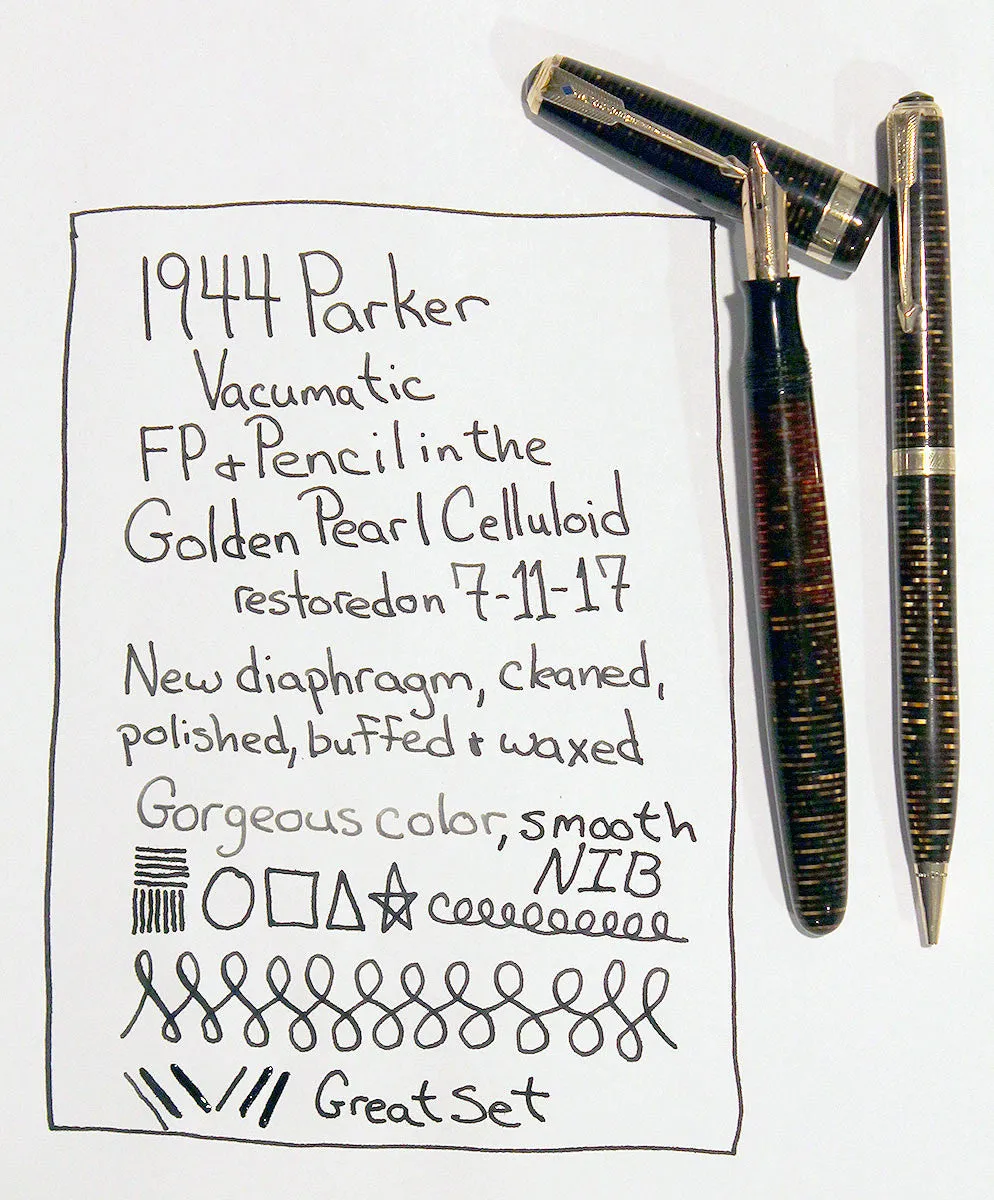 1944 Parker
Vacumatic
FP & Pencil in the
Golden Pearl Celluloid
restored on 7-11-17
New diaphragm, cleaned,
polished, buffed & waxed
Gorgeous color, smooth
NIB
Great Set